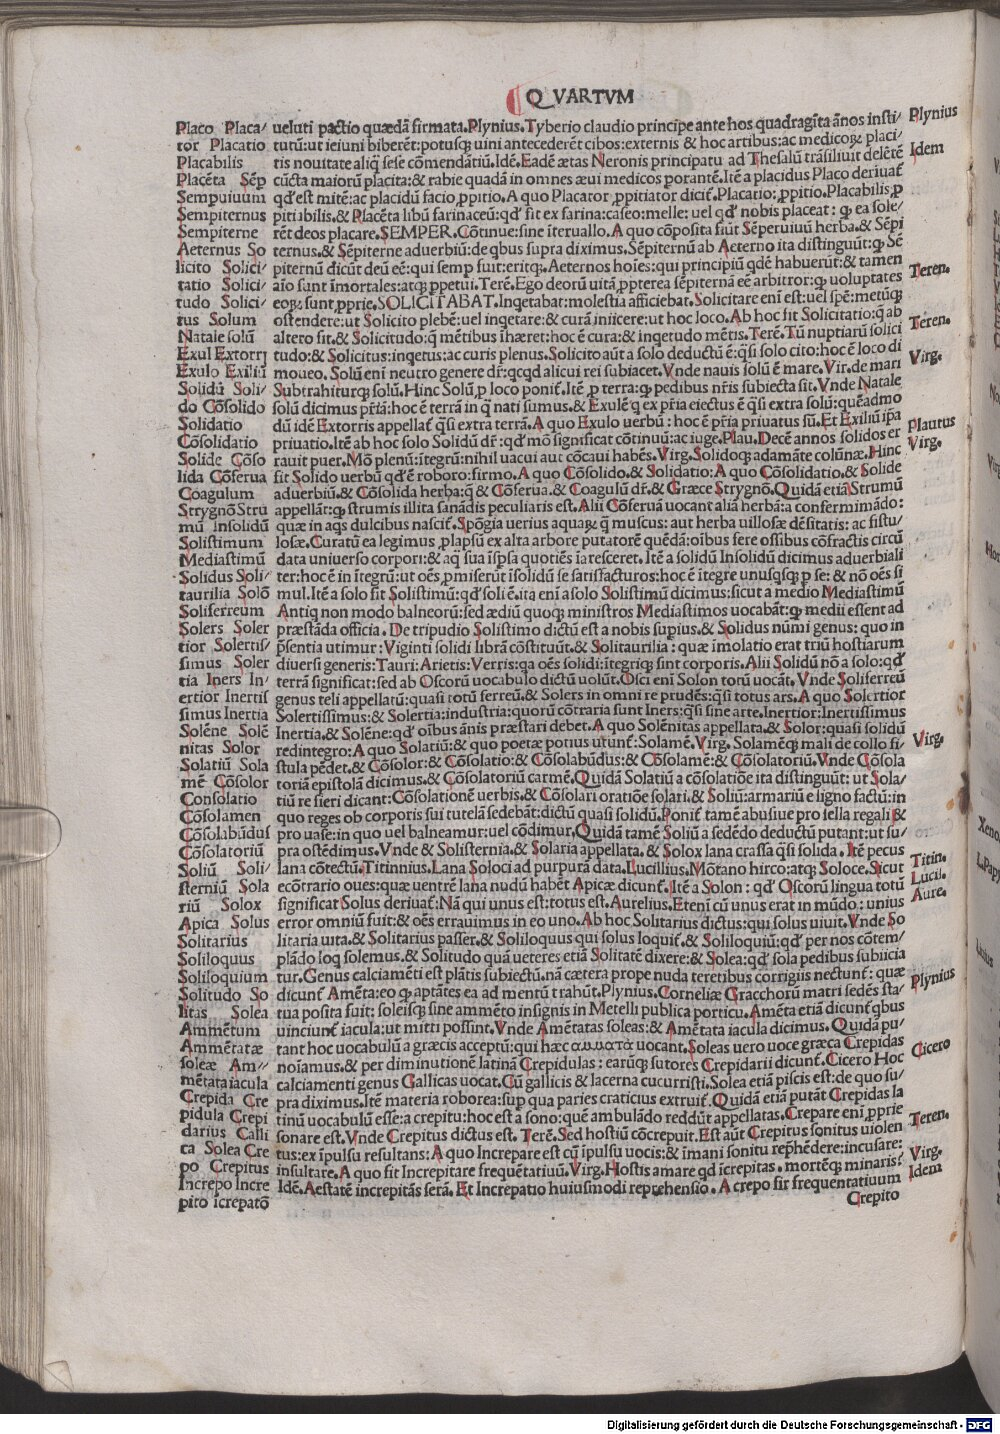 QVARTVM
Placo Placa/
tor Placatio
Placabilis
Placēta Sēp
Sempuiuum
Sempiternus
Sempiterne
Aeternus So
licito Solici/
tatio Solici/
tudo Solici/
tus Solum
Natale solū
Exul Extorrꝭ
Exulo Exiliū
Solidū Soli/
do Cōsolido
Solidatio
Cōsolidatio
Solide Cōso
lida Cōferua
Coagulum
Strygnō Stru
mū Insolidū
Solistimum
Mediastimū
Solidus Soli/
taurilia Solō
Soliferreum
Solers Soler
tior Solertis/
simus Soler
tia Iners In/
ertior Inertis
simus Inertia
Solēne Solē
nitas Solor
Solatiū Sola
mē Cōsolor
Consolatio
Cōsolamen
Cōsolabūdus
Cōsolatoriū
Soliū Soli/
sterniū Sola
riū Solox
Apica Solus
Solitarius
Soliloquus
Solisoquium
Solitudo So
litas Solea
Ammētum
Ammētatæ
soleæ Am//
mētata iacula
Crepida Cre
pidula Crepi
darius Calli
ca Solea Cre
po Crepitus
Increpo Incre
pito īcrepatō
ueluti pactio quædā firmata. Plynius. Tyberio claudio principe ante hos quadragīta ānos insti/
tutū: ut ieiuni biberēt: potusꝗ uini antecederēt cibos: externis & hoc artibus: ac medicoꝝ placi/
tis nouitate aliq̄ sese cōmendātiū. Idē. Eadē ætas Neronis principatu ad Thesalū trāsiliuit delērē
cūcta maiorū placita: & rabie quadā in omnes æui medicos ꝑorantē. Itē a placidus Placo deriuat̄
qd̄ est mitē: ac placidū facio, ꝓpitio. A quo Placator, ꝓpitiator dicit̄. Placatio: ꝓpitio. Placabilis ꝓ
pitiabilis. & Placēta libū farinaceū: qd̄ sit ex farina: caseo: melle: uel qd̄ nobis placeat: ꝙ ea sole/
rēt deos placare. SEMPER. Cōtinue: sine īteruallo. A quo cōposita siūt Sēperuiuū herba. & Sēpi
ternus. & Sēpiterne aduerbiū: de qbus supra diximus. Sēpiternū ab Aeterno ita distinguūt: ꝙ Sē
piternū dicūt deū eē: qui semꝑ fuit: eritꝙ. Aeternos hoīes: qui principiū qdē habuerūt: & tamen
aīo sunt īmortales: atꝙ ꝑpetui. Terē. Ego deorū uitā ꝓpterea sēpiternā eē arbitror: ꝙ uoluptates
eoꝝ sunt ꝓprie. SOLICITABAT. Inqetabat: molestia afficiebat. Solicitare enī est: uel spē: metūꝙ
ostendere: ut Solicito plebē: uel inqetare: & curā iniicere: ut hoc loco. Ab hoc sit Solicitatio: q̄ ab
altero sit. & Solicitudo: q̄ mētibus īhæret: hoc ē cura: & inqetudo mētis. Terē. Tū nuptiarū solici
tudo: & Solicitus: inqetus: ac curis plenus. Solicito aūt a solo deductū ē: q̄si solo cito: hoc ē loco di
moueo. Solū enī neutro genere dr̄: qcqd alicui rei subiacet. Vnde nauis solū ē mare. Vir. de mari
Subtrahiturꝙ solū. Hinc Solū ꝓ loco ponit̄. Itē ꝓ terra: ꝙ pedibus nr̄is subiecta sit. Vnde Natale
solū dicimus pr̄iā: hoc ē terrā in q̄ nati sumus. & Exulē q ex pr̄ia eiectus ē q̄si extra solū: quēadmo
dū idē Extorris appellat̄ q̄si extra terrā. A quo Exulo uerbū: hoc ē pr̄ia priuatus sū. Et Exiliū ip̄a
priuatio. Itē ab hoc solo Solidū dr̄: qd̄ mō significat cōtinuū: ac iuge. Plau. Decē annos solidos er
rauit puer. Mō plenū: īntegrū: nihil uacui aut cōcaui habēs. Virg. Solidoꝙ adamāte colūnæ. Hinc
fit Solido uerbū qd̄ ē roboro: firmo. A quo Cōsolido. & Solidatio: A quo Cōsolidatio. & Solide
aduerbiū. & Cōsolida herba: q̄ & Cōferua. & Coagulū dr̄. & Græce Strygnō. Quidā etiā Strumū
appellāt: ꝙ strumis illita sanādis peculiaris est. Alii Cōferuā uocant aliā herbā: a confermimādo:
quæ in aqs dulcibus nascit̄. Spōgia uerius aquaꝝ q̄ muscus: aut herba uillosæ dēsitatis: ac fistu/
losæ. Curatū ea legimus ꝓlapsū ex alta arbore putatorē quēdā: oībus fere ossibus cōfractis circū
data uniuerso corpori: & aq̄ sua īspsa quotiēs īaresceret. Itē a solidū Insolidū dicimus aduerbiali
ter: hoc ē in ītegrū: ut oēs ꝓmiserūt īsolidū se satisfacturos: hoc ē ītegre unusqsꝙ ꝑ se: & nō oēs si
mul. Itē a solo fit Solistimū: qd̄ soli ē. ita enī a solo Solistimū dicimus: sicut a medio Mediastimū
Antiq non modo balneorū: sed ædiū quoꝙ ministros Mediastimos uocabāt: ꝙ medii essent ad
præstāda officia. De tripudio Solistimo dictū est a nobis supius. & Solidus nūmi genus: quo in
p̄sentia utimur: Viginti solidi librā cōstituūt. & Solitaurilia: quæ īmolatio erat triū hostiarum
diuersi generis: Tauri: Arietis: Verris: qa oēs solidi: ītegriꝙ sint corporis. Alii Solidū nō a solo: qd̄
terrā significat: sed ab Oscorū uocabulo dictū uolūt. Osci enī Solon totū uocāt. Vnde Soliferreū
genus teli appellatū: quasi totū ferreū. & Solers in omni re prudēs: q̄si totus ars. A quo Solertior
Solertissimus: & Solertia: industria: quorū cōtraria sunt Iners: q̄si sine arte. Inertior: Inertissimus
Inertia. & Solēne: qd̄ oībus ānis præstari debet. A quo Solēnitas appellata. & Solor: quasi solidū
redintegro: A quo Solatiū: & quo poetæ potius utunt̄: Solamē. Virg. Solamēꝙ mali de collo fi/
stula pēdet. & Cōsolor: & Cōsolatio: & Cōsolabūdus: & Cōsolamē: & Cōsolatoriū. Vnde Cōsola
toriā epistolā dicimus. & Cōsolatoriū carmē. Quidā Solatiū a cōsolatiōe ita distinguūt: ut Sola/
tiū re fieri dicant: Cōsolationē uerbis. & Cōsolari oratiōe solari. & Soliū: armariū e ligno factū: in
quo reges ob corporis sui tutelā sedebāt: dictū quasi solidū. Ponit̄ tamē abusiue pro sella regali &
pro uase: in quo uel balneamur: uel cōdimur. Quidā tamē Soliū a sedēdo deductū putant: ut su/
pra ostēdimus. Vnde & Solisternia. & Solaria appellata. & Solox lana crassa q̄si solida. Itē pecus
lana cōtectū. Titinnius. Lana Soloci ad purpurā data. Lucillius. Mōtano hirco: atꝙ Soloce. Sicut
ecōtrario oues: quæ uentrē lana nudū habēt Apicæ dicunt̄. Itē a Solon: qd̄ Oscorū lingua totū
significat Solus deriuat̄: Nā qui unus est: totus est. Aurelius. Etenī cū unus erat in mūdo: unius
error omniū fuit: & oēs errauimus in eo uno. Ab hoc Solitarius dictus: qui solus uiuit. Vnde So
litaria uita. & Solitarius passer. & Soliloquus qui solus loquit̄. & Soliloquiū: qd̄ per nos cōtem/
plādo loq solemus. & Solitudo quā ueteres etiā Solitatē dixere: & Solea: qd̄ sola pedibus subiicia
tur. Genus calciamēti est plātis subiectū. nā cætera prope nuda teretibus corrigiis nectunt̄: quæ
dicunt̄ Amēta: eo ꝙ aptātes ea ad mentū trahūt. Plynius. Corneliæ Gracchorū matri sedēs sta/
tua posita fuit: soleisꝙ sine ammēto insignis in Metelli publica porticu. Amēta etiā dicunt̄ qbus
uinciunt̄ iacula: ut mitti possint. Vnde Amētatas soleas: & Amētata iacula dicimus. Quidā pu/
tant hoc uocabulū a græcis acceptū: qui hæc αμματα uocant. Soleas uero uoce græca Crepidas
noīamus. & per diminutionē latinā Crepidulas: earūꝙ sutores Crepidarii dicunt̄. Cicero Hoc
calciamenti genus Gallicas uocat. Cū gallicis & lacerna cucurristi. Solea etiā piscis est: de quo su/
pra diximus. Itē materia roborea: sup qua paries craticius extruit̄. Quidā etiā putāt Crepidas la
tinū uocabulū esse: a crepitu: hoc est a sono: quē ambulādo reddūt appellatas. Crepare enī ꝓprie
sonare est. Vnde Crepitus dictus est. Terē. Sed hostiū cōcrepuit. Est aūt Crepitus sonitus uiolen
tus: ex īpulsu resultans: A quo Increpare est cū īpulsu uocis: & īmani sonitu rep̄hēdere: incusare:
insultare. A quo fit Increpitare frequētatiuū. Virg. Hostis amare qd īcrepitas. mortēꝙ minaris?
Idē. Aestatē increpitās serā. Et Increpatio huiusmodi reprehensio. A crepo fir frequentatiuum
Crepito
Plynius
Idem
Teren.
Teren.
Virg.
Plautus
Virg.
Virg.
Titin.
Lucil.
Aure.
Plynius
Cicero
Teren.
Virg.
Idem
Digitalisierung gefördert durch die Deutsche Forschungsgemeinschaft - DFG